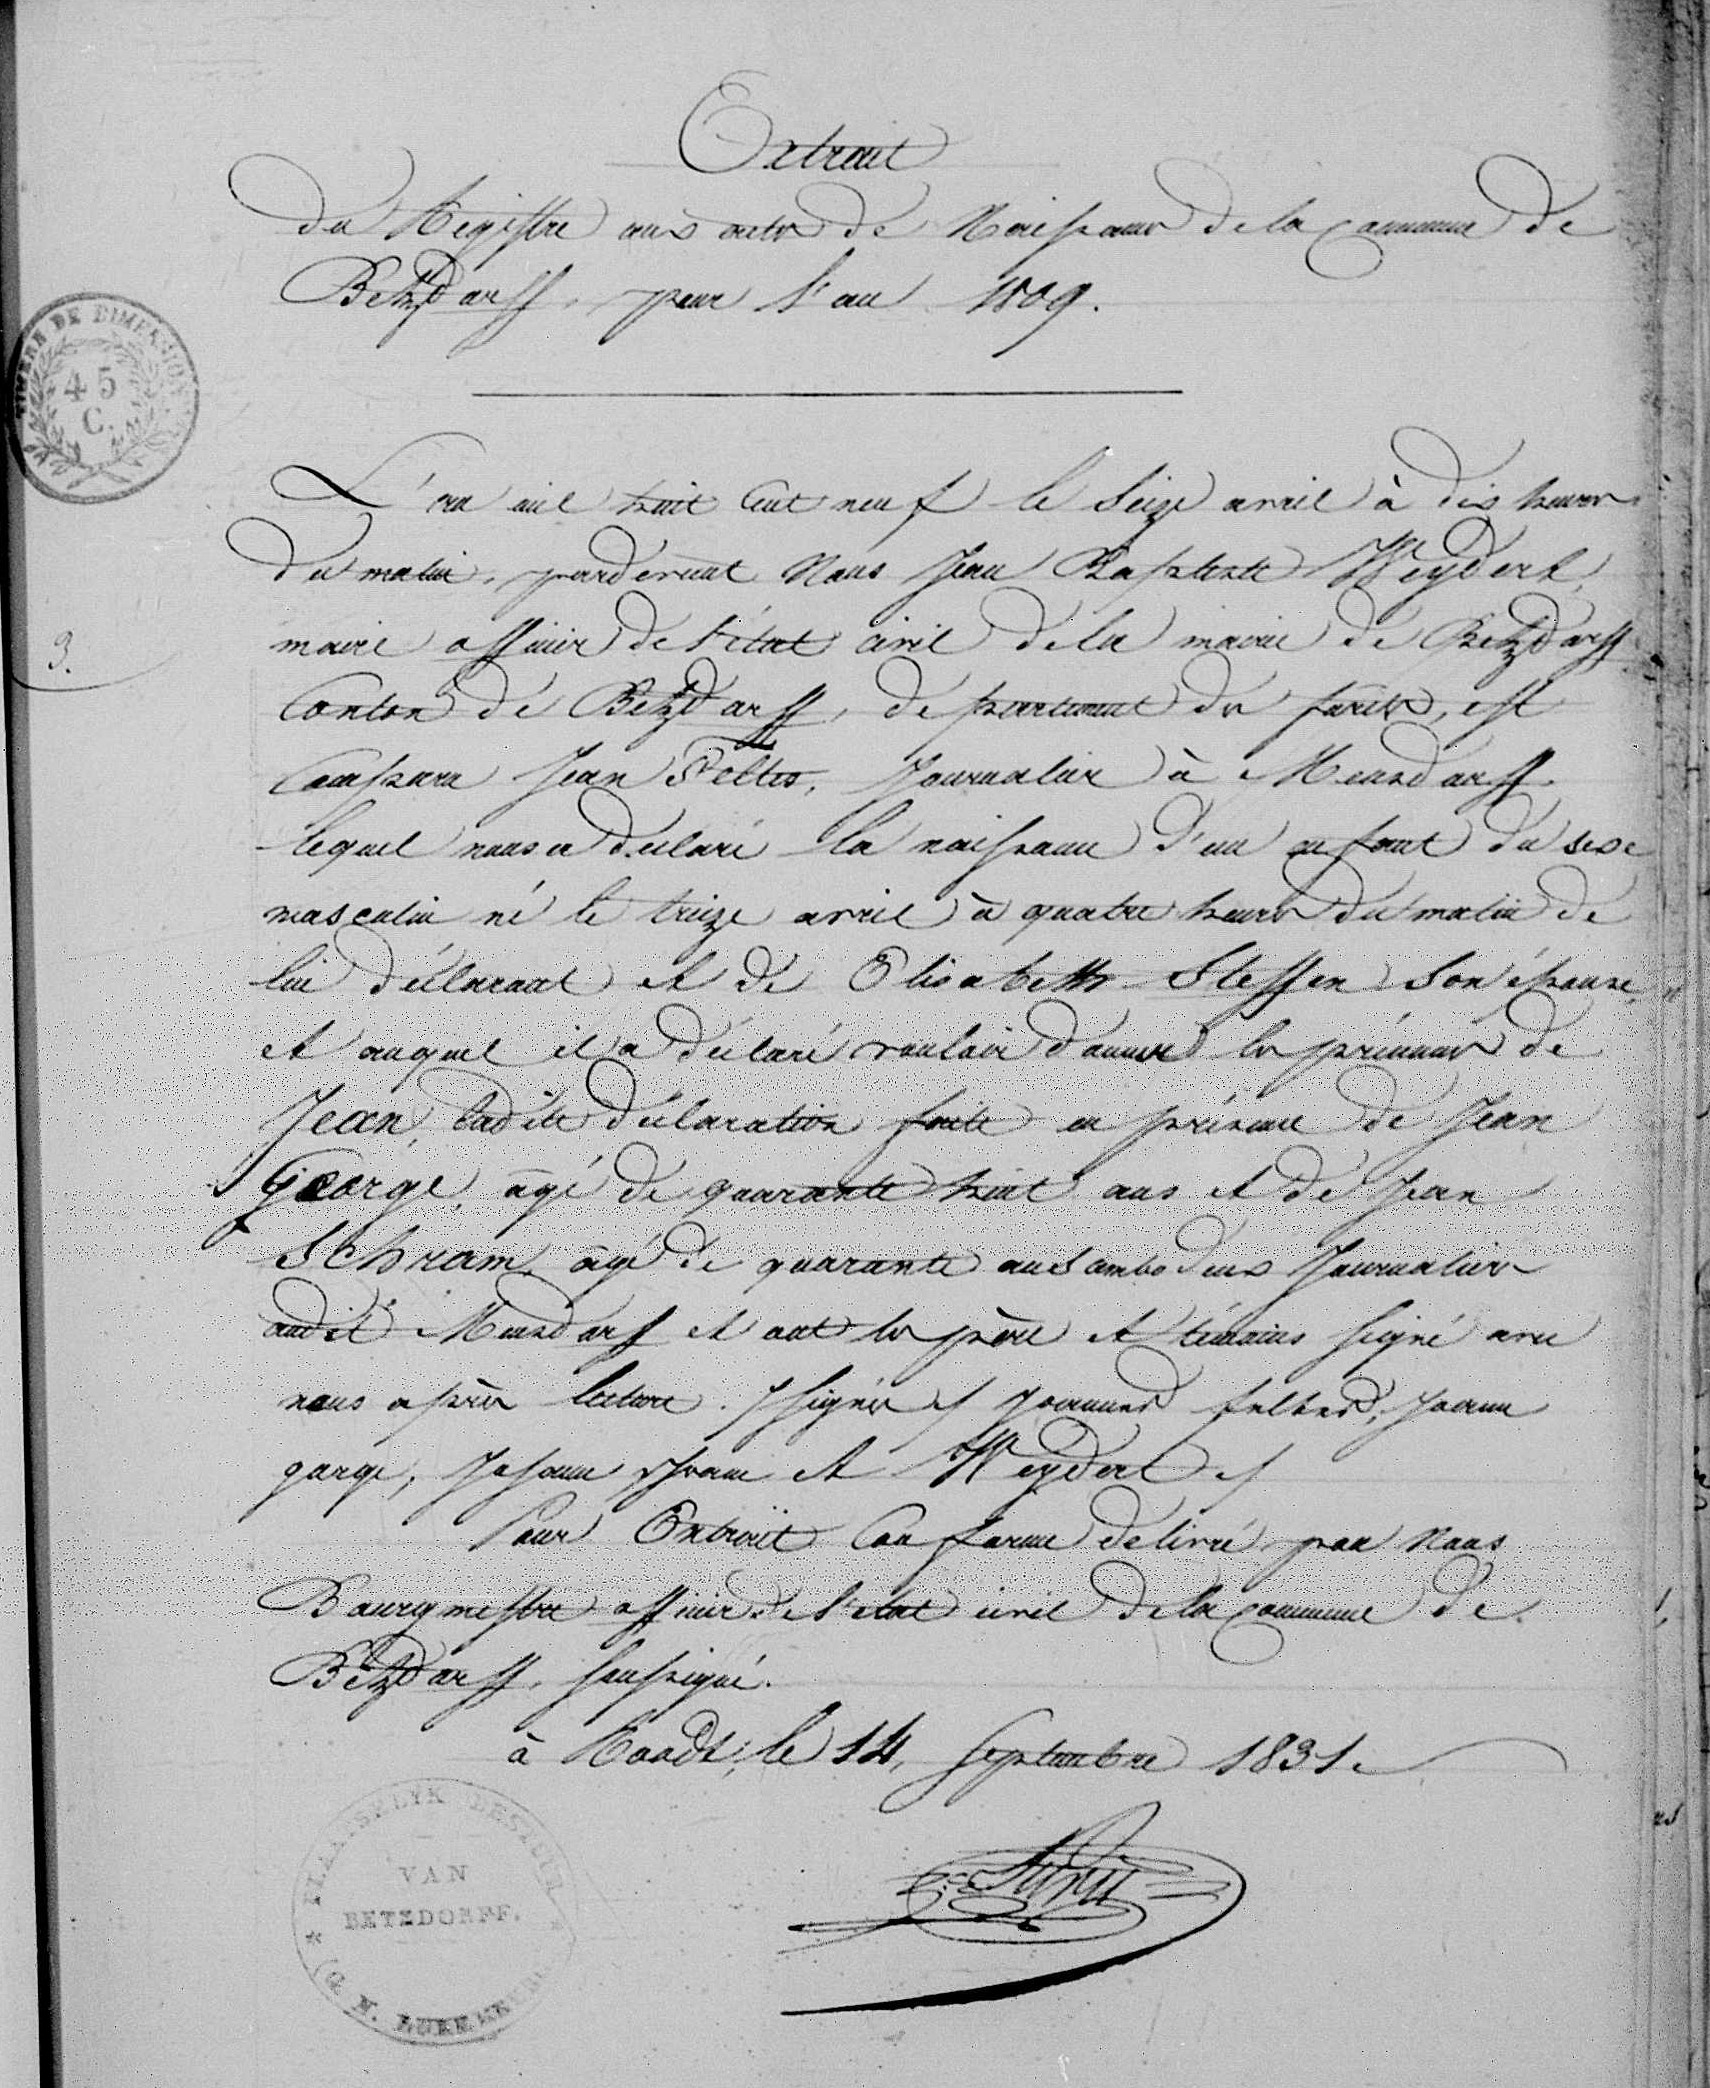 Extrait
du Registre aux actes de Naissances de la Commune de
Betzdorff, pour l'an 1809.
TIMBRE DE DIMENSION
45
C.
L'an mil huit Cent neuf le Seize avril à dix heures
du matin, pardevant Nous Jean Baptiste Weydert,
maire officier de l'état civil de la mairie de Betzdorff
3.
Canton de Betzdorff, département des forêts, est
Comparu Jean Feltes, Journalier à Mensdorff
lequel nous a déclaré la naissance d'un enfant du sexe
masculin né le treize avril à quatre heures du matin de
lui déclarant et de Elisabeth Steffen Son épouse,
et auquel il a déclaré vouloir donner les prénoms de
Jean, Ladite déclaration faite en présence de Jean
George, agé de quarante huit ans et de Jean
Schram, agé de quarante ans ambo deux Journaliers
audit Mensdorf et ont les père et témoins signé avec
nous après lecture. /signés/ Joannes feltes, Joann
gorge, Johann Schram et Weydert /
Pour Extrait Conforme délivré par Nous
Bourgmestre officier de l'état civil de la Commune de
Betzdorff, soussigné.
à Roodt, le 14 Septembre 1831.
PLAATSELYK BESTUUR
VAN
BETZDORFF.
(G. H. LUXEMBURG)